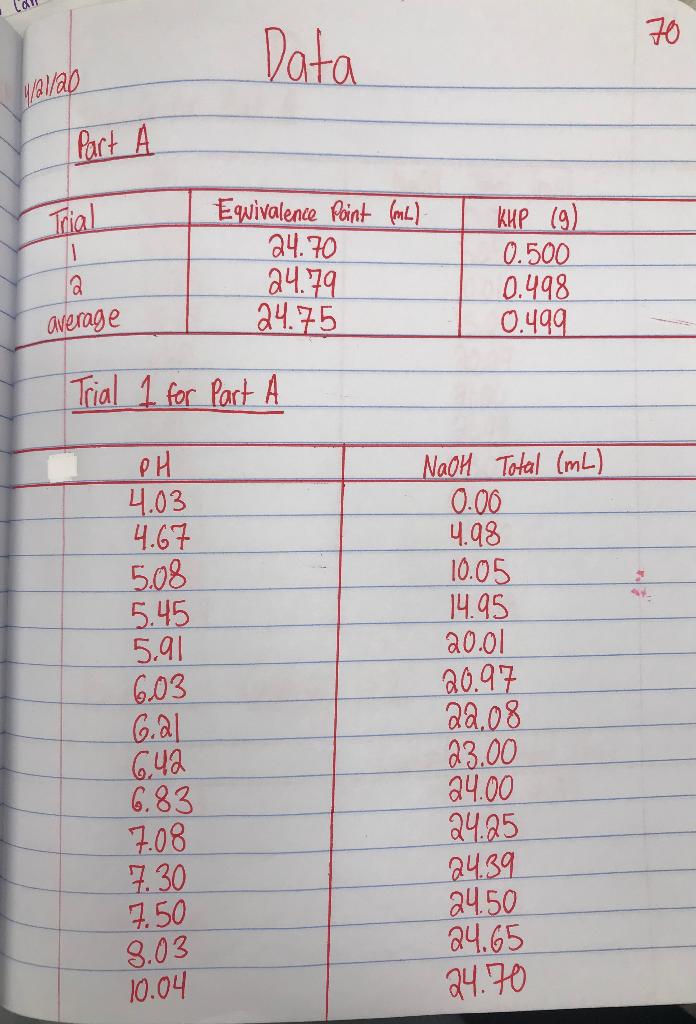 Data
70
4/21/20
Part A
Trial Equivalence Point (mL) KHP (g)
1 24.70 0.500
2 24.79 0.498
average 24.75 0.499
Trial 1 for Part A
pH NaOH Total (mL)
4.03 0.00
4.67 4.98
5.08 10.05
5.45 14.95
5.91 20.01
6.03 20.97
6.21 22.08
6.42 23.00
6.83 24.00
7.08 24.25
7.30 24.39
7.50 24.50
8.03 24.65
10.04 24.70